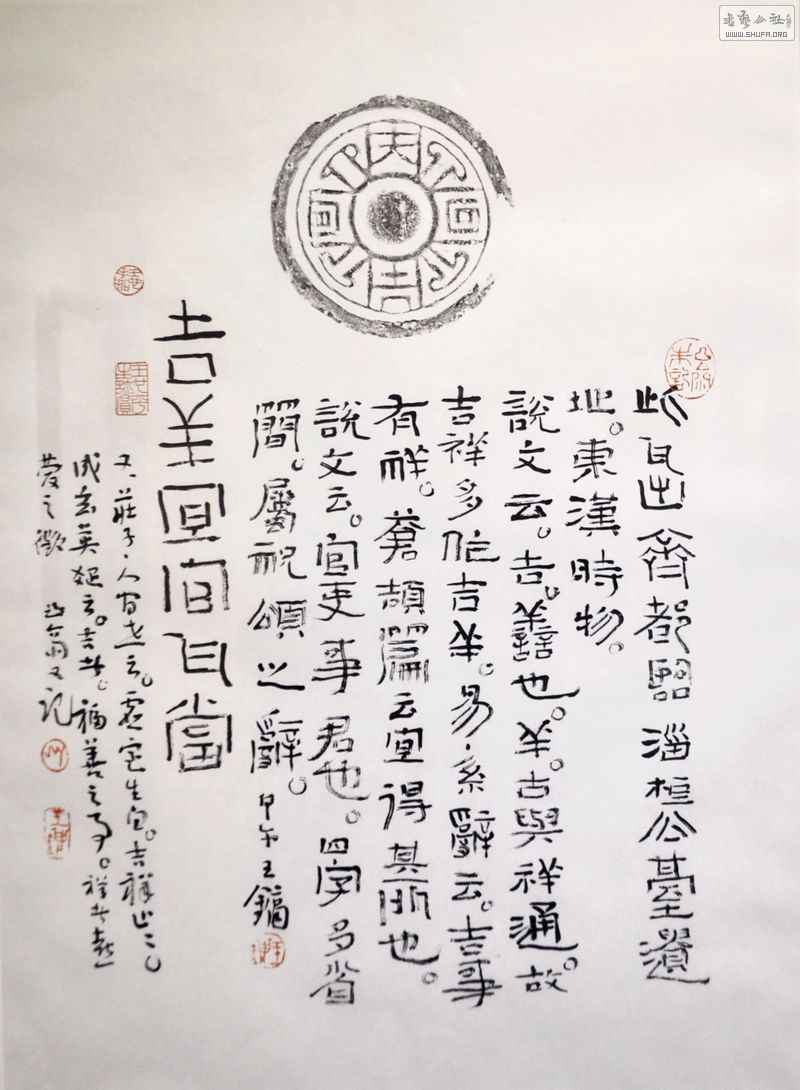 書藝公社
WWW.SHUFA.ORG
此瓦出齊都臨淄桓公臺遺
址。東漢時物。
說文云。吉。譱也。羊。古與祥通。故
吉祥多作吉羊。易·系辭云。吉事
有祥。蒼頡篇云宜得其所也。
說文云。官吏事君也。四字多省
簡。屬祝頌之辭。甲午王鏑
吉羊宜官瓦當
又。莊子·人間世云。虛室生白。吉祥止止。
成玄英疏云。吉者。福善之事。祥者嘉
慶之徵 翁又記